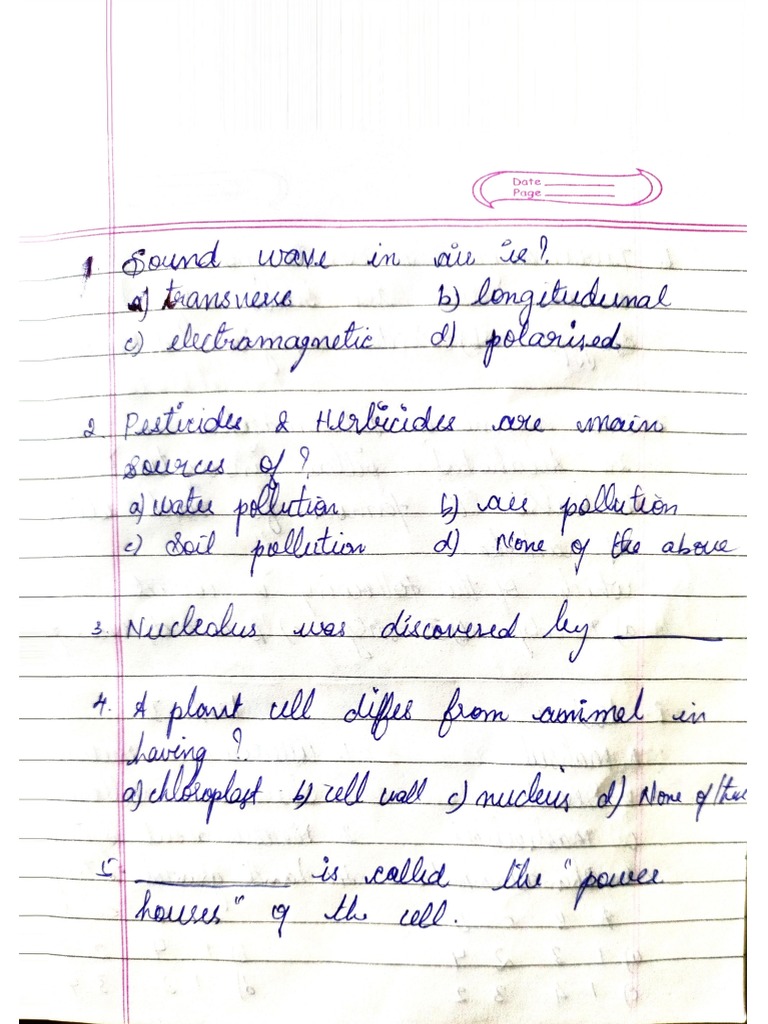 Date
Page
1 Sound wave in air is?
a) transverse b) longitudunal
c) electromagnetic d) polarised
2. Pesticides & Herbicides are main
sources of?
a) water pollution b) air pollution
c) Soil pollution d) None of the above
3. Nucleolus was discovered by ______
4. A plant cell diffes from animel in
having?
a) chloroplast b) cell wall c) nucleis d) None of these
5. ______ is called the "power
houses" of the cell.